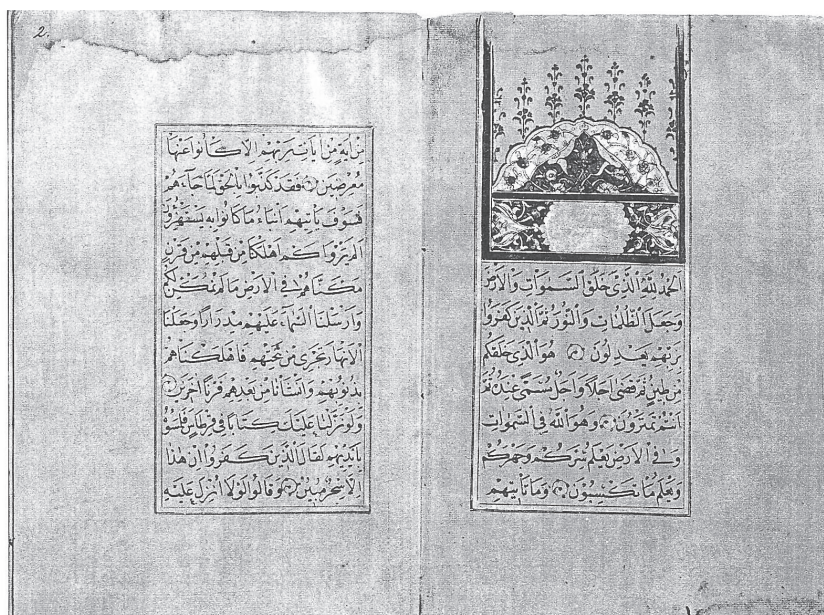 الحمد لله الذي خلق السموات والارض
وجعل الظلمات والنور ثم الذين كفروا
بربهم يعدلون هو الذي خلقكم
من طين ثم قضى اجلا واجل مسمى عنده ثم
انتم تمترون وهو الله في السموات
وفي الارض يعلم سركم وجهركم
ويعلم ما تكسبون وما تأتيهم
2.
من اية من ايات ربهم الا كانوا عنها
معرضين فقد كذبوا بالحق لما جاءهم
فسوف يأتيهم انباء ما كانوا به يستهزؤن
الم يروا كم اهلكنا من قبلهم من قرن
مكناهم في الارض ما لم نمكن لكم
وارسلنا السماء عليهم مدرارا وجعلنا
الانهار تجري من تحتهم فاهلكناهم
بذنوبهم وانشأنا من بعدهم قرنا اخرين
ولو نزلنا عليك كتابا في قرطاس فلمسوه
بايديهم لقال الذين كفروا ان هذا
الا سحر مبين وقالوا لولا انزل عليه